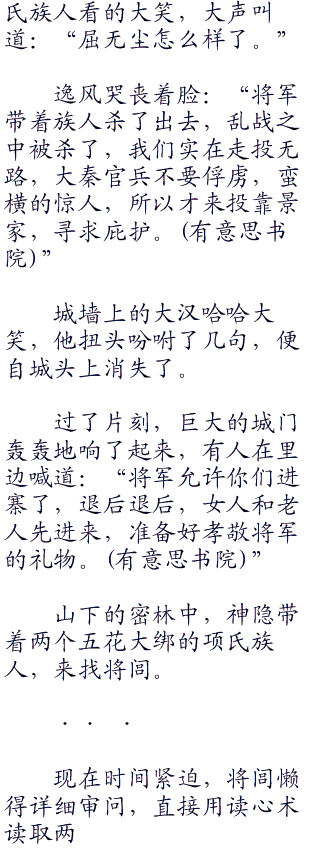 氏族人看的大笑，大声叫
道：“屈无尘怎么样了。”
逸风哭丧着脸：“将军
带着族人杀了出去，乱战之
中被杀了，我们实在走投无
路，大秦官兵不要俘虏，蛮
横的惊人，所以才来投靠景
家，寻求庇护。(有意思书
院)”
城墙上的大汉哈哈大
笑，他扭头吩咐了几句，便
自城头上消失了。
过了片刻，巨大的城门
轰轰地响了起来，有人在里
边喊道：“将军允许你们进
寨了，退后退后，女人和老
人先进来，准备好孝敬将军
的礼物。(有意思书院)”
山下的密林中，神隐带
着两个五花大绑的项氏族
人，来找将闾。
．．．
现在时间紧迫，将闾懒
得详细审问，直接用读心术
读取两